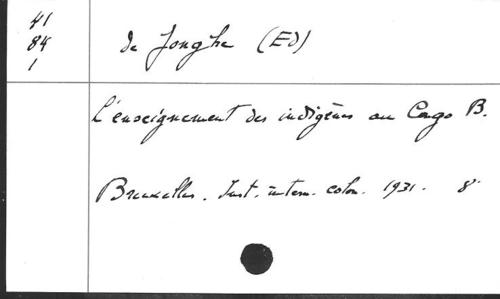 41
84
1
de Jonghe (Ed)
L'enseignement des indigènes au Congo B.
Bruxelles. Inst. intern. colon. 1931. 8°